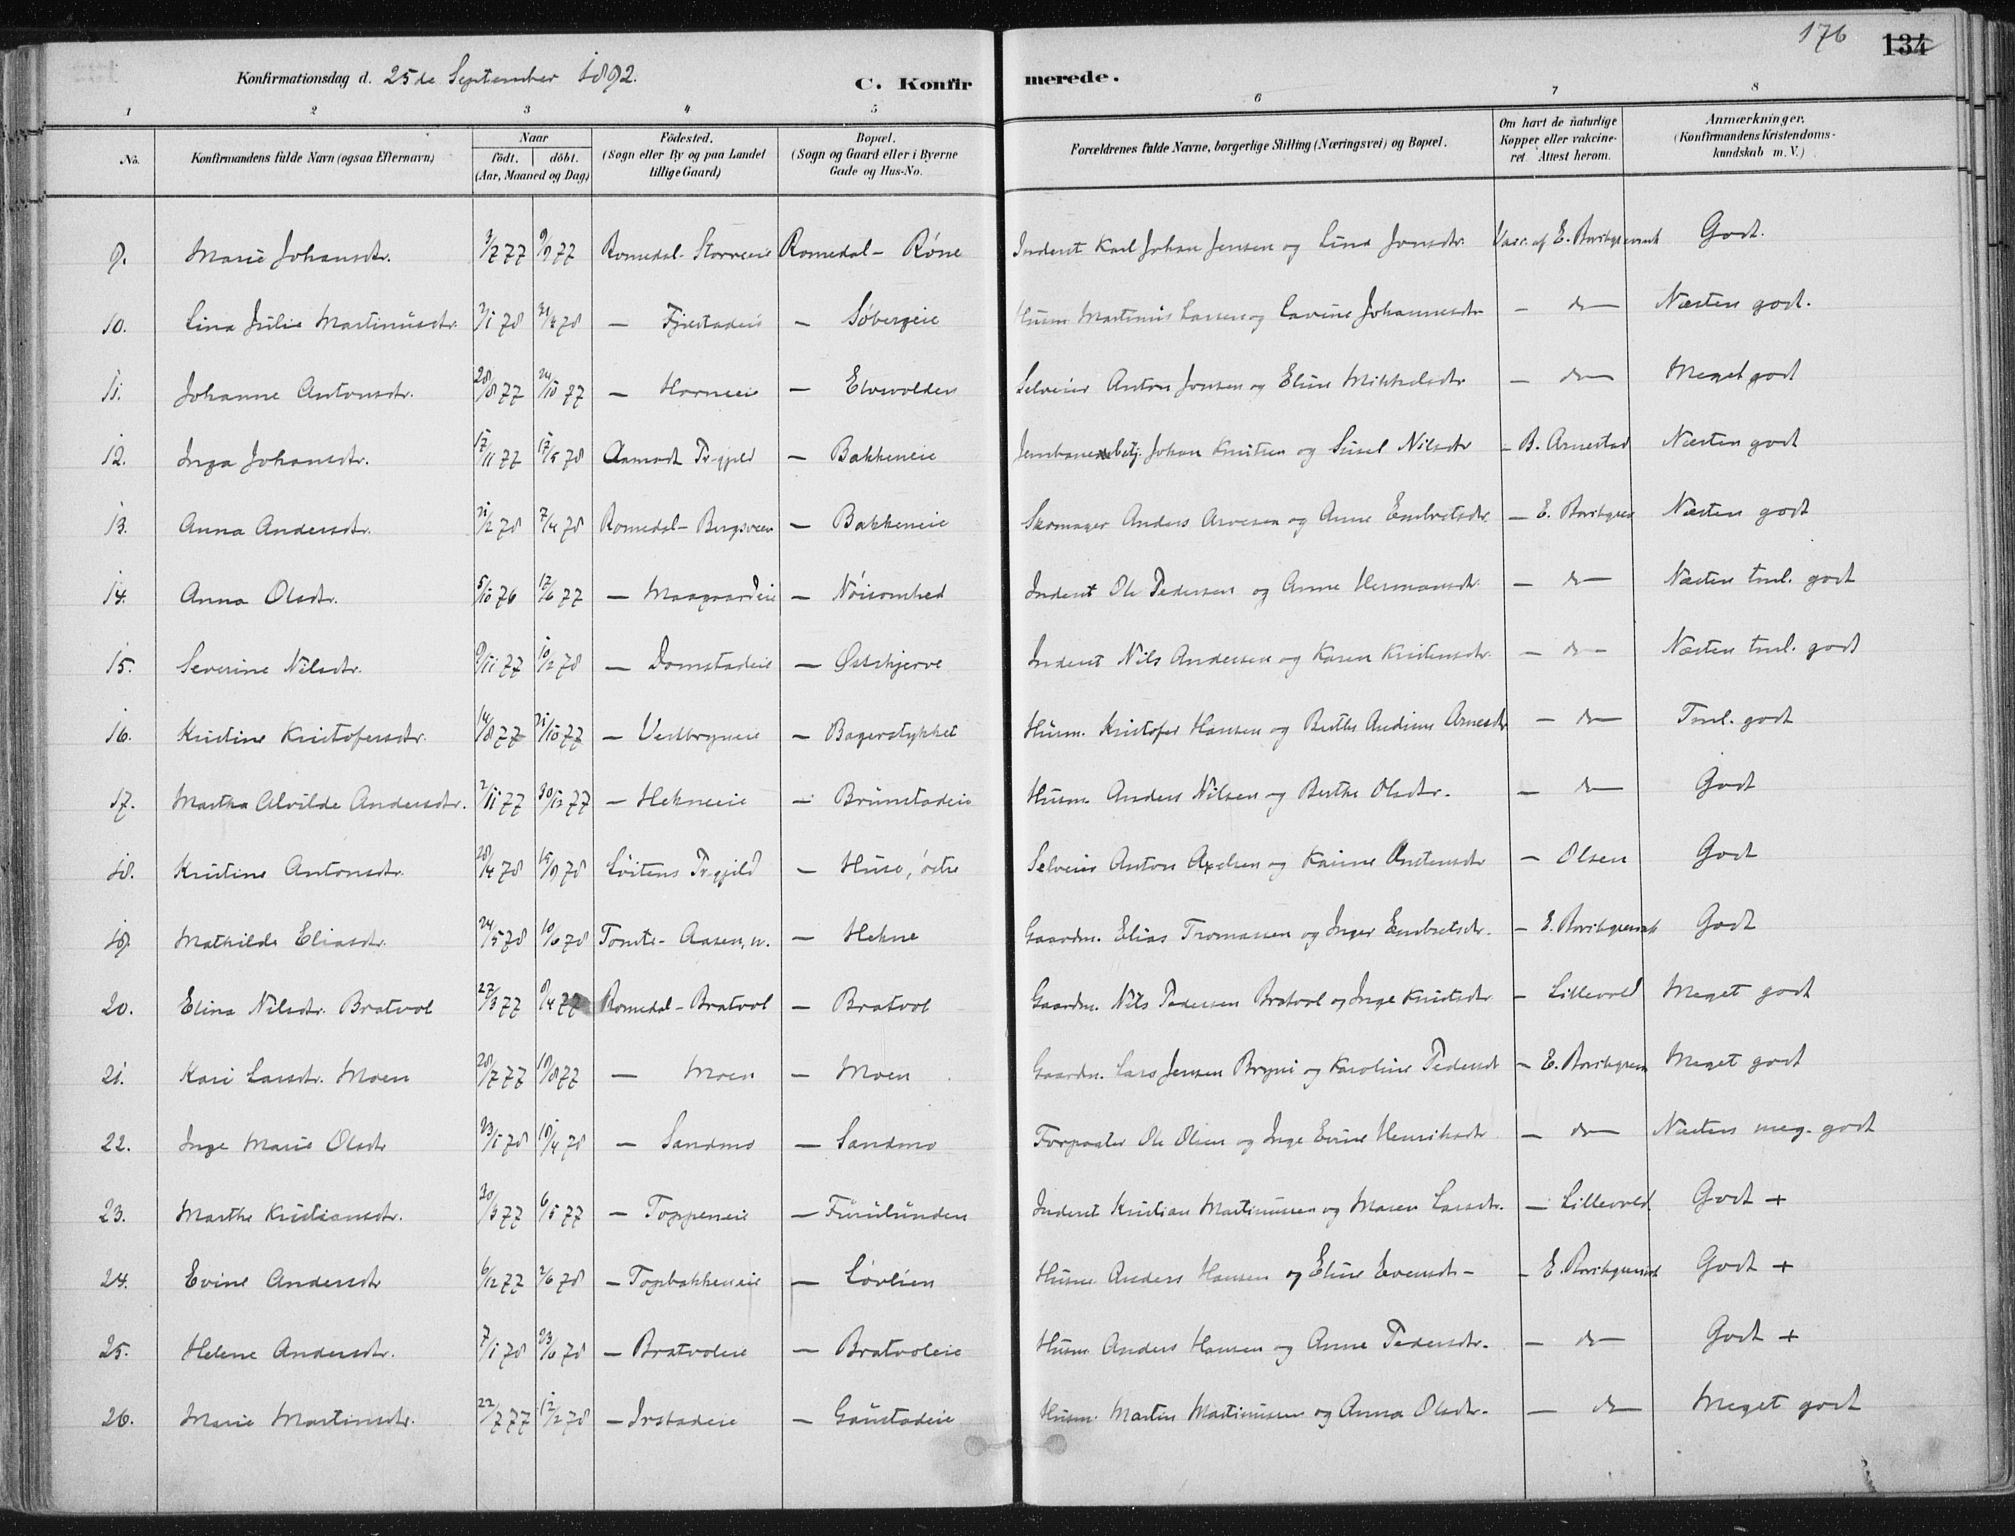 176 134
Konfirmationsdag d. 25de September 1892. C. Konfirmerede.
1 2 3 4 5 6 7 8
No. Konfirmandens fulde Navn (ogsaa Efternavn) Naar födt. döbt. (Aar, Maaned og Dag) Födested. (Sogn eller By og paa Landet tillige Gaard) Bopæl. (Sogn og Gaard eller i Byerne Gade og Hus-No. Forældrenes fulde Navne, borgerlige Stilling (Næringsvei) og Bopæl. Om havt de naturlige Kopper eller vakcineret. Attest herom. Anmærkninger. (Konfirmandens Kristendomskundskab m. V.)
9. Marie Johansdtr. 3/7 77 9/9 77 Romedal - Storreeie Romedal - Röne Inderst Karl Johan Jensen og Lina Jonsdtr. Vacc. af E. Good.
10. Lina Julie Martinusdtr. 7/1 78 – – Söbergeie Husm Martinus Larsen og Lavine Johannesdtr – do – Næsten godt.
11. Johanne Antonsdtr. 28/8 77 24/10 77 – Horneeie – Elvevolden Selveier Anton Jonsen og Eline Mikkelsdtr – do – Meget godt
12. Inga Johansdtr. 17/11 77 17/5 78 Aamodt Pr-gjeld – Bakkeneie Jernbanebetj. Johan Knutsen og Sissel Nilsdtr – B. Arnestad Næsten godt
13. Anna Andersdtr. 21/2 78 7/4 78 Romedal - Bergsveen – Bakkeneie Skomager Anders Arnesen og Anne Embretsdtr. – E. Næsten godt
14. Anna Olsdtr. 5/10 76 17/6 77 – Maagaardeie – Nöisomhed Inderst Ole Pedersen og Anne Hermansdtr. – do – Næsten tml. godt
15. Severine Nilsdtr. 9/11 77 10/2 78 – Domstadeie – Östskjerve Inderst Nils Andersen og Karen Kristensdtr. – do – Næsten tml. godt
16. Kristine Kristofersdtr. 14/8 77 21/10 77 – Vestbryneie – Bagerstykket Husm. Kristofer Hansen og Berthe Andrine Arnesdtr – do – Tml. godt
17. Martha Alvilde Andersdtr. 2/11 77 30/12 77 – Hekneeie – Brunstadeie Husm. Anders Nilsen og Berthe Olsdtr. – do – Godt
18. Kristine Antonsdtr. 28/4 78 15/9 78 Löitens Pr.gjeld – Huse, östre Selveier Anton Axelsen og Karine Østensdtr – Olsen Godt
19. Mathilde Eliasdtr. 24/5 78 10/6 78 Tomte - Aasen, n. – Hekne Gaardm. Elias Tromassen og Inger Embretsdtr. – E. Godt
20. Elina Nilsdtr. Bratvol 27/3 77 9/4 77 Romedal - Bratvol – Bratvol Gaardm. Nils Pedersen Bratvol og Inge Knutsdtr – Lillevold Meget godt
21. Kari Larsdtr. Moen 28/7 77 19/8 77 – Moen – Moen Gaardm. Lars Jensen Bryni og Karoline Pedersdt – E. Meget godt
22. Inge Marie Olsdtr 23/1 78 – Sandmo – Sandmo Forpagter Ole Olsen og Inge Evine Henriksdtr – do – Næsten meg. godt
23. Marthe Kristiansdtr. 30/3 77 6/5 77 – Toppeneie – Furulunden Inderst Kristian Martinussen og Maren Larsdtr. – Lillevold Godt +
24. Evine Andersdtr 6/12 77 2/6 78 – Topbakkeneie – Lövlien Husm Anders Hansen og Eline Evensdtr – – E. Godt +
25. Helene Andersdtr. 7/1 78 23/6 78 – Bratvoleie – Bratvoleie Husm Anders Hansen og Anne Pedersdtr. – do – Godt +
26. Marie Martinsdtr. 22/7 77 12/2 78 – Irstadeie – Gaustadeie Husm. Martin Martinussen og Anna Olsdtr. – do – Meget godt